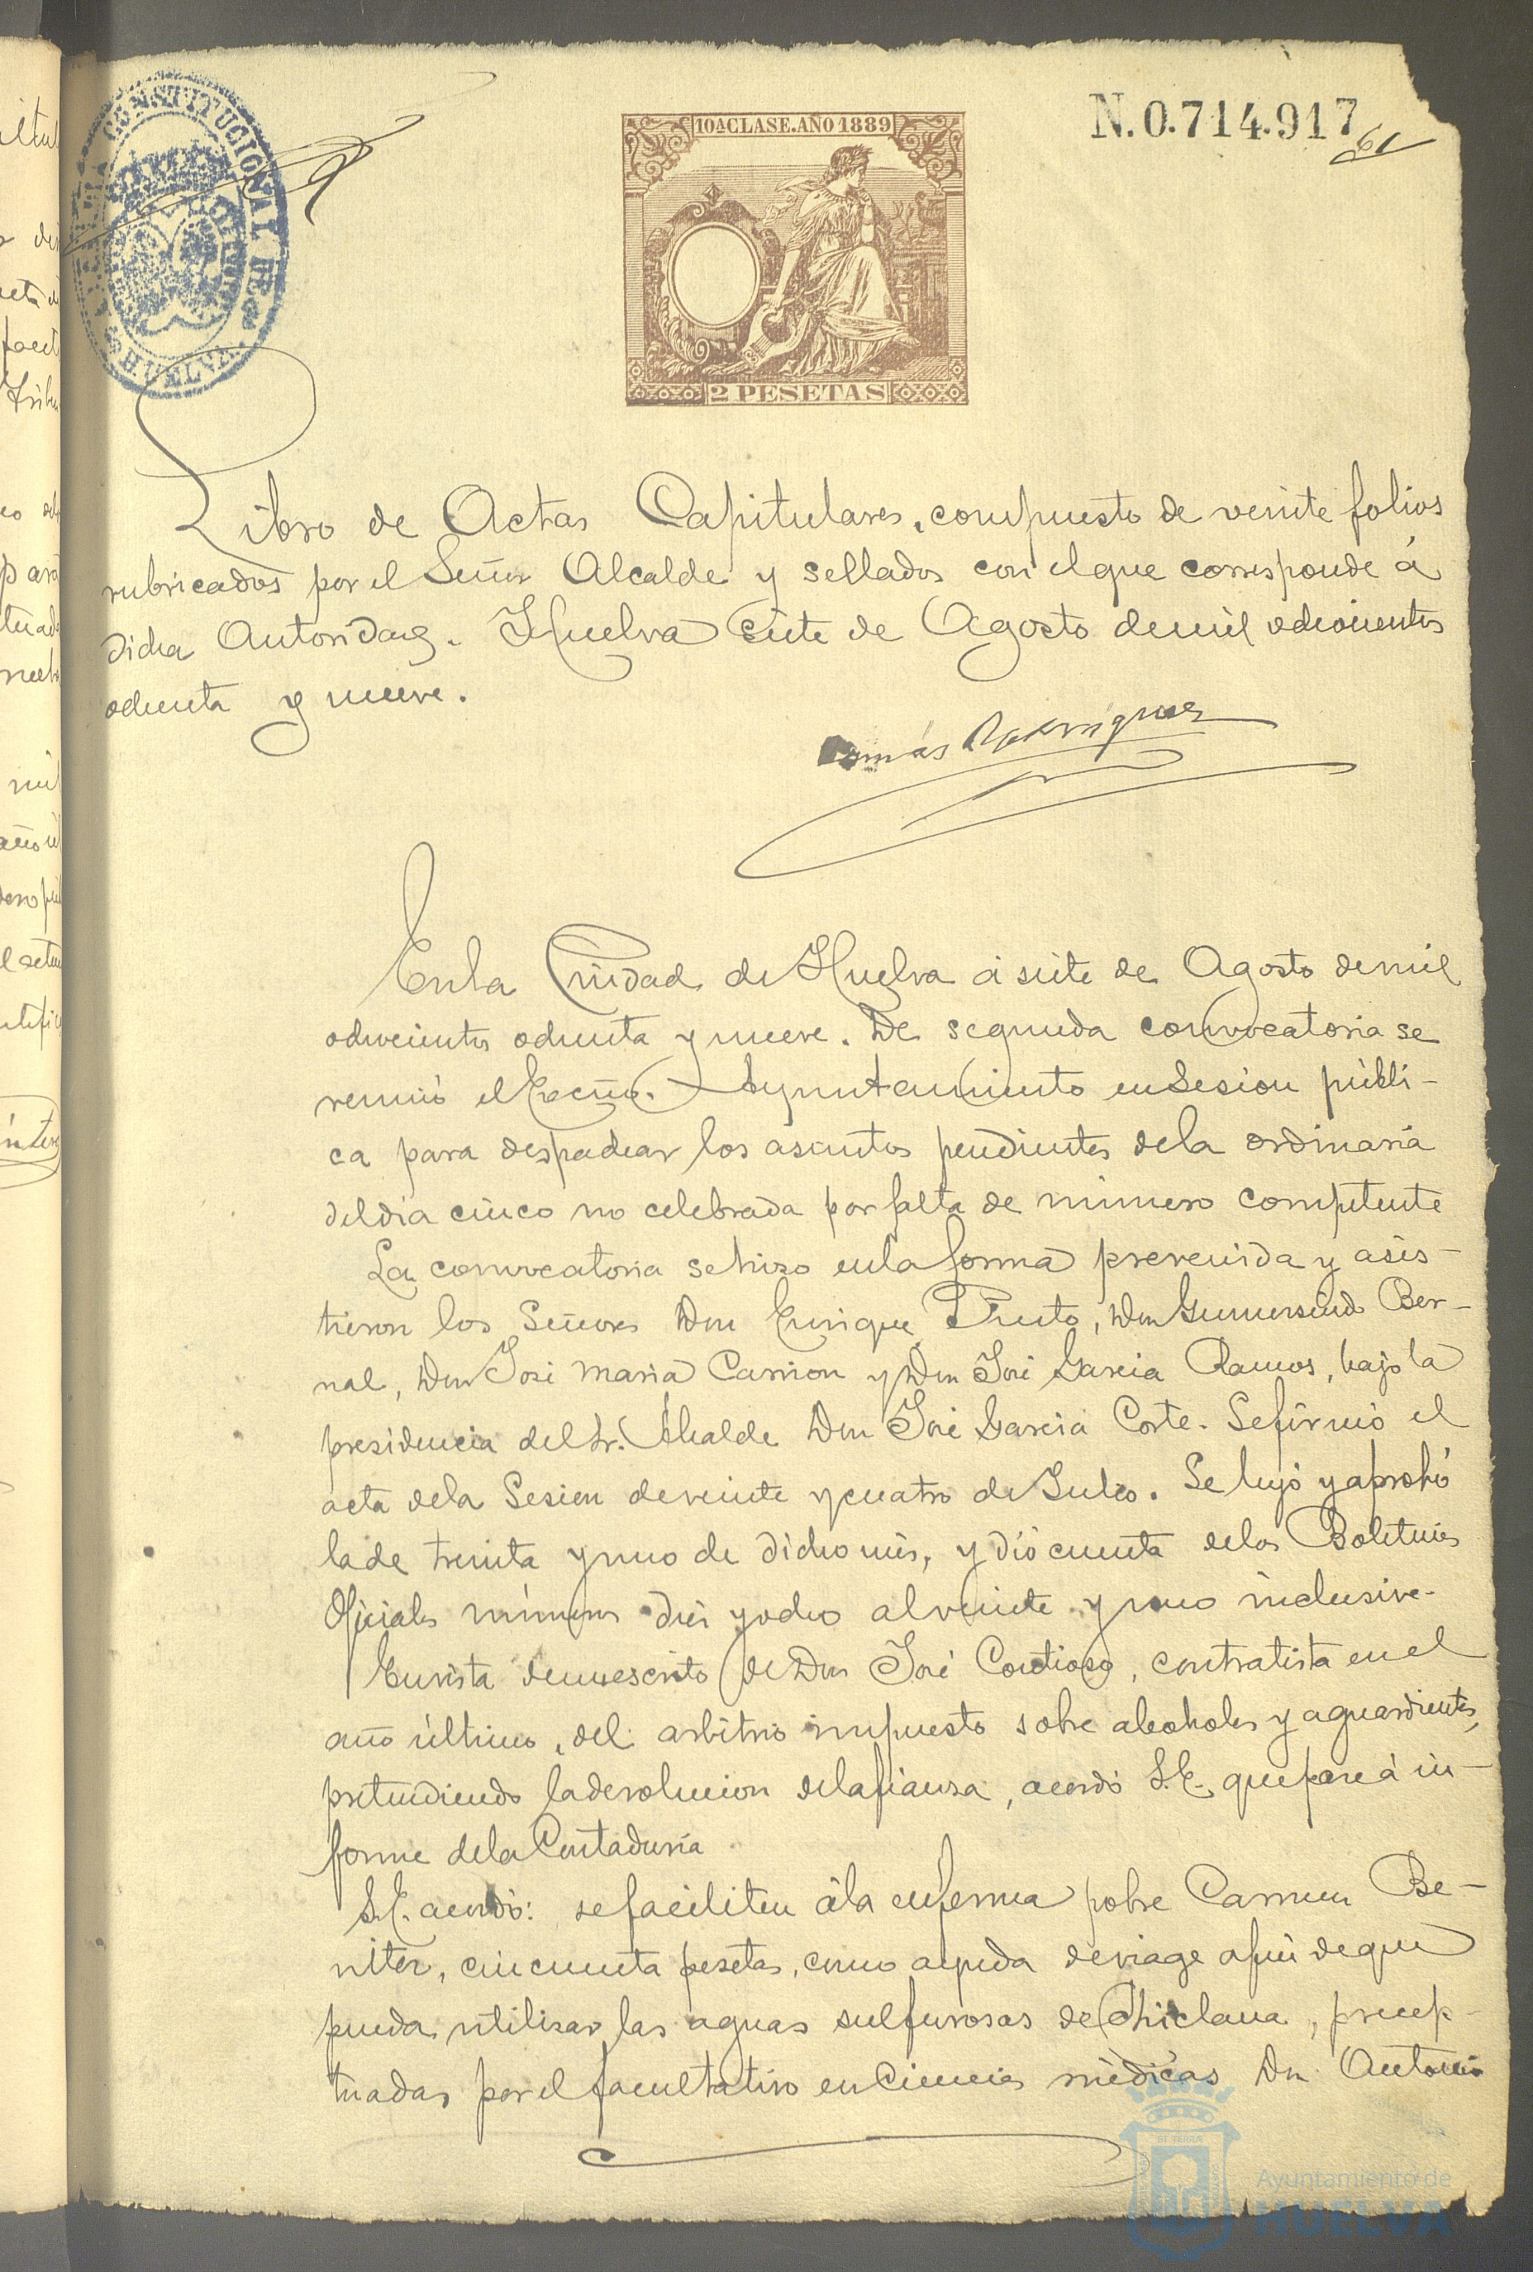 CONSTITUCIONAL DE
HUELVA
10ª CLASE. AÑO 1889
N. 0.714.917
61
2 PESETAS
Libro de Actas Capitulares, compuesto de veinte folios
rubricados por el Señor Alcalde y sellados con el que corresponde á
dicha Autoridad. Huelva siete de Agosto de mil ochocientos
ochenta y nueve.
Tomás Rodriguez
En la Ciudad de Huelva á siete de Agosto de mil
ochocientos ochenta y nueve. De segunda convocatoria se
reunió el Excmo. Ayuntamiento en Sesion públi-
ca para despachar los asuntos pendientes de la ordinaria
del dia cinco no celebrada por falta de número competente
La convocatoria se hizo en la forma prevenida y asis-
tieron los Señores Don Enrique Prieto, Don Gumersindo Ber-
nal, Don José Maria Carrion y Don José Garcia Ramos, bajo la
presidencia del Sr. Alcalde Don José Garcia Corte. Se firmó el
acta de la Sesion de veinte y cuatro de Julio. Se leyó y aprobó
la de treinta y uno de dicho mes, y dió cuenta de los Boletines
Oficiales números diez y ocho al veinte y uno inclusive.
En vista de un escrito de Don José Contioso, contratista en el
año último, del arbitrio impuesto sobre alcoholes y aguardientes,
pretendiendo la devolucion de la fianza, acordó S.E. que pase á in-
forme de la Contaduria
S.E. acordó: se faciliten á la enferma pobre Carmen Be-
nitez, cincuenta pesetas, como ayuda de viage a fin de que
pueda utilizar las aguas sulfurosas de Chiclana, precep-
tuadas por el facultativo en Ciencias médicas Dn Antonio
Ayuntamiento de
HUELVA